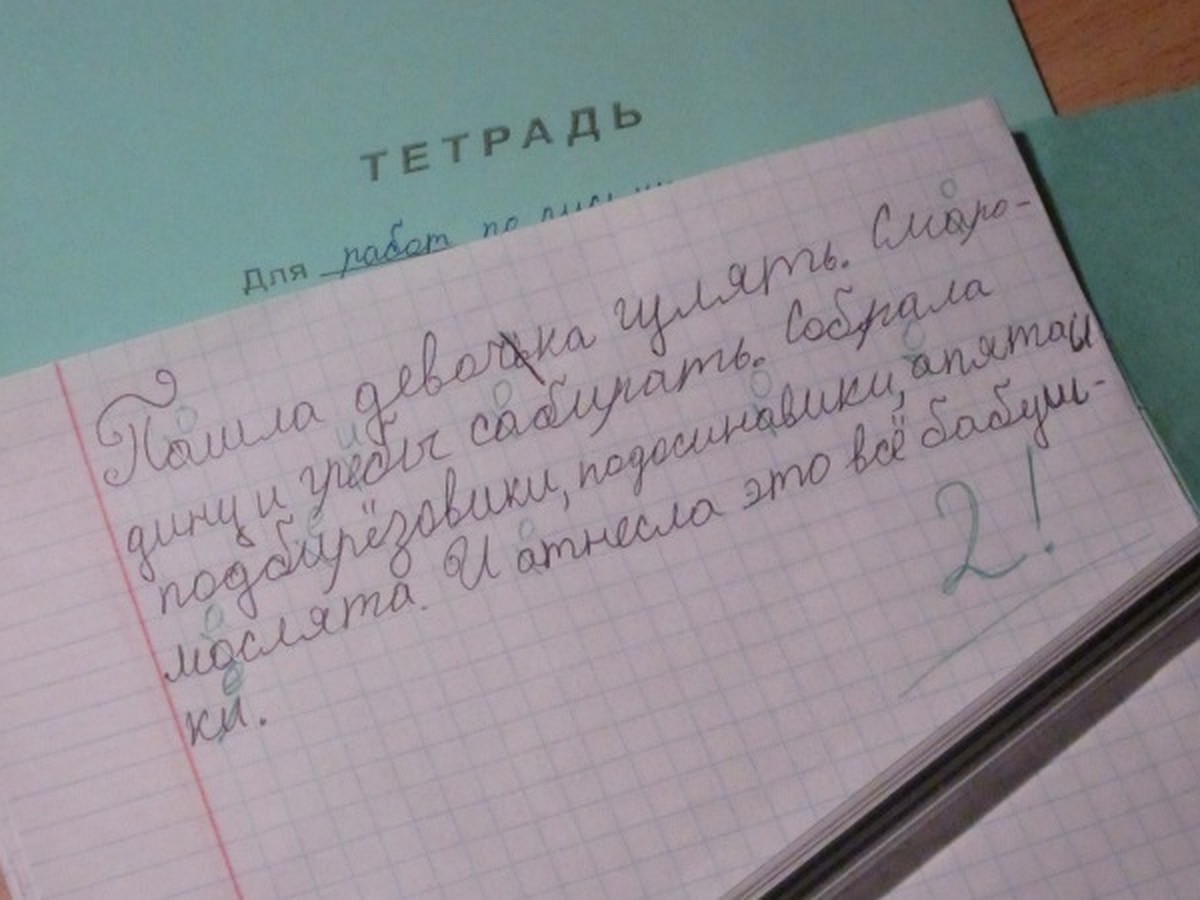 ТЕТРАДЬ
Для работ по
Пашла девочка гулять. Смаро-
дину и гребы сабирать. Собрала
подбирёзовики, подосинавики, апята и
маслята. И атнесла это всё бабуш-
ки.
2!